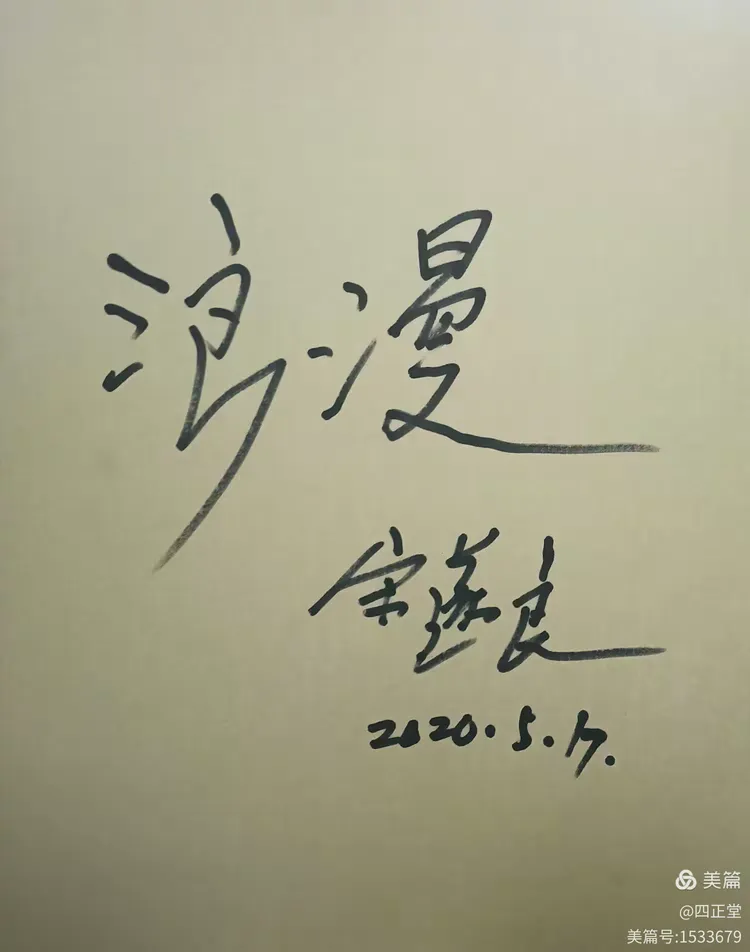 浪漫
宋遂良
2020.5.17.
美篇
@四正堂
美篇号:1533679